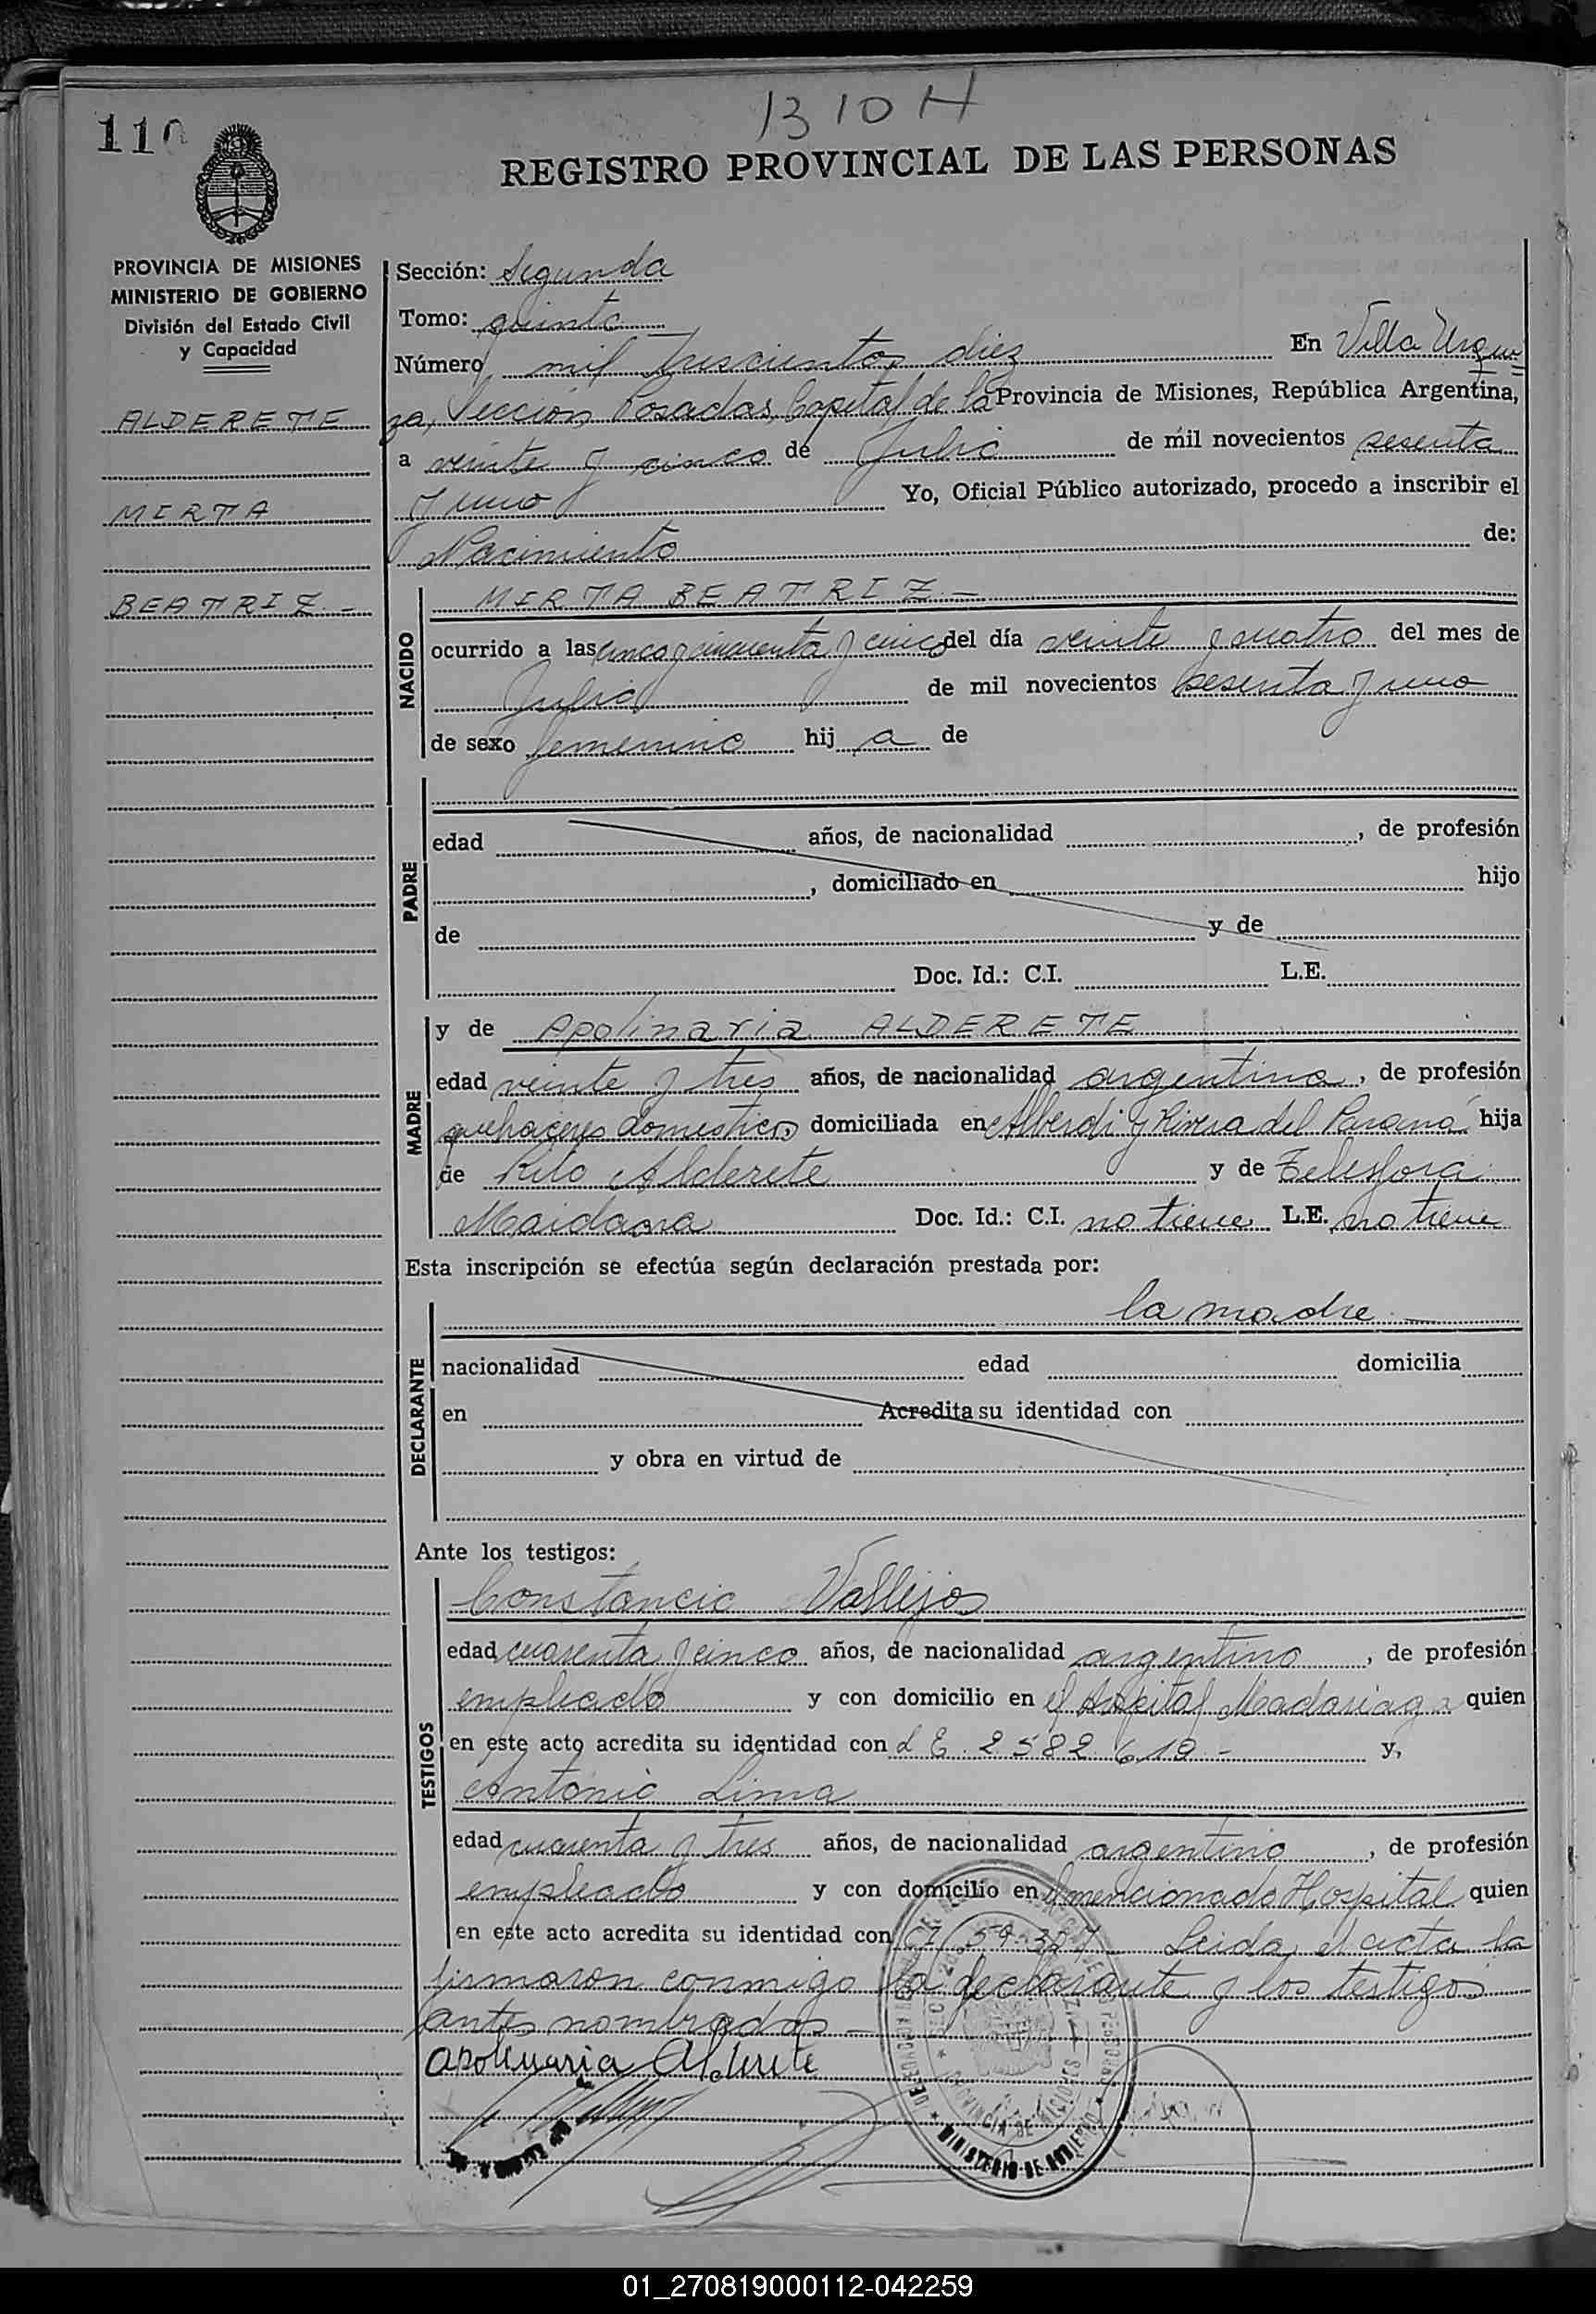 1310 H
110
REGISTRO PROVINCIAL DE LAS PERSONAS
PROVINCIA DE MISIONES
MINISTERIO DE GOBIERNO
División del Estado Civil
y Capacidad
ALDERETE
MIRTA
BEATRIZ.-
Sección: Segunda
Tomo: quinto
Número mil trescientos diez En Villa Urqui
za, Sección Posadas, Capital de la Provincia de Misiones, República Argentina,
a veinte y cinco de Julio de mil novecientos sesenta
y uno Yo, Oficial Público autorizado, procedo a inscribir el
Nacimiento de:
NACIDO
MIRTA BEATRIZ.-
ocurrido a las cinco y cincuenta y cinco del día veinte y cuatro del mes de
Julio de mil novecientos sesenta y uno
de sexo femenino hij a de
PADRE
edad años, de nacionalidad , de profesión
, domiciliado en hijo
de y de
Doc. Id.: C.I. L.E.
MADRE
y de Apolinaria ALDERETE
edad veinte y tres años, de nacionalidad argentina, de profesión
quehaceres domesticos domiciliada en Alberdi y Rivera del Paraná hija
de Rito Alderete y de Telesfora
Maidana Doc. Id.: C.I. no tiene L.E. no tiene
Esta inscripción se efectúa según declaración prestada por:
DECLARANTE
la madre
nacionalidad edad domicilia
en Acredita su identidad con
y obra en virtud de
Ante los testigos:
TESTIGOS
Constancio Vallejos
edad cuarenta y cinco años, de nacionalidad argentino, de profesión
empleado y con domicilio en el Hospital Madariaga quien
en este acto acredita su identidad con L E. 2582 610.- y,
Antonio Lima
edad cuarenta y tres años, de nacionalidad argentino, de profesión
empleado y con domicilio en el mencionado Hospital quien
en este acto acredita su identidad con CI 59.387 Leida el acta la
firmaron conmigo la declarante y los testigos
antes nombrados
Apolinaria Alderete
PROVINCIA DE MISIONES
MINISTERIO DE GOBIERNO
01_270819000112-042259